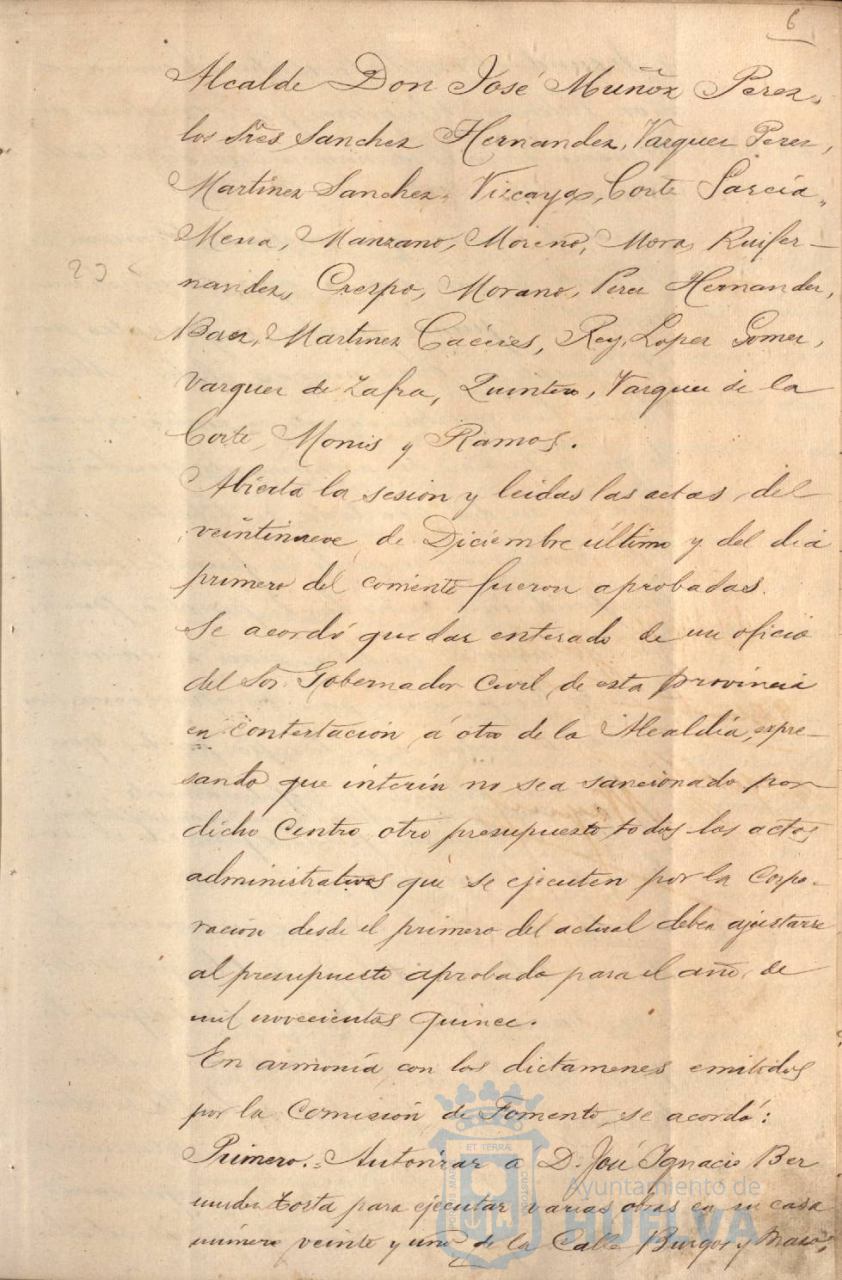 6
Alcalde Don José Muñoz Perez,
los Sres Sanchez Hernandez, Vazquez Perez,
Martinez Sanchez, Vizcaya, Corte Garcia,
Mena, Manzano, Moreno, Mora, Ruifer-
nandez, Crespo, Morano, Perez Hernandez,
Baez, Martinez Cacéres, Rey, Lopez Gomez,
Vazquez de Zafra, Quintero, Vazquez de la
Corte, Monis y Ramos.
Abierta la sesion y leidas las actas del
veintinueve de Diciembre último y del dia
primero del corriente fueron aprobadas.
Se acordó quedar enterado de un oficio
del Sor. Gobernador Civil de esta provincia
en contestación á otro de la Alcaldía, expre-
sando que interin no sea sancionado por
dicho Centro otro presupuesto, todos los actos
administrativos que se ejecuten por la Corpo-
ración desde el primero del actual deben ajustarse
al presupuesto aprobado para el año de
mil novecientos quince.
En armonía con los dictamenes emitidos
por la Comisión de Fomento, se acordó:
Primero.= Autorizar a D. José Ignacio Ber
mudez Tosta para ejecutar varias obras en su casa
número veinte y uno de la Calle Burgos y Mazo,
Ayuntamiento de
HUELVA